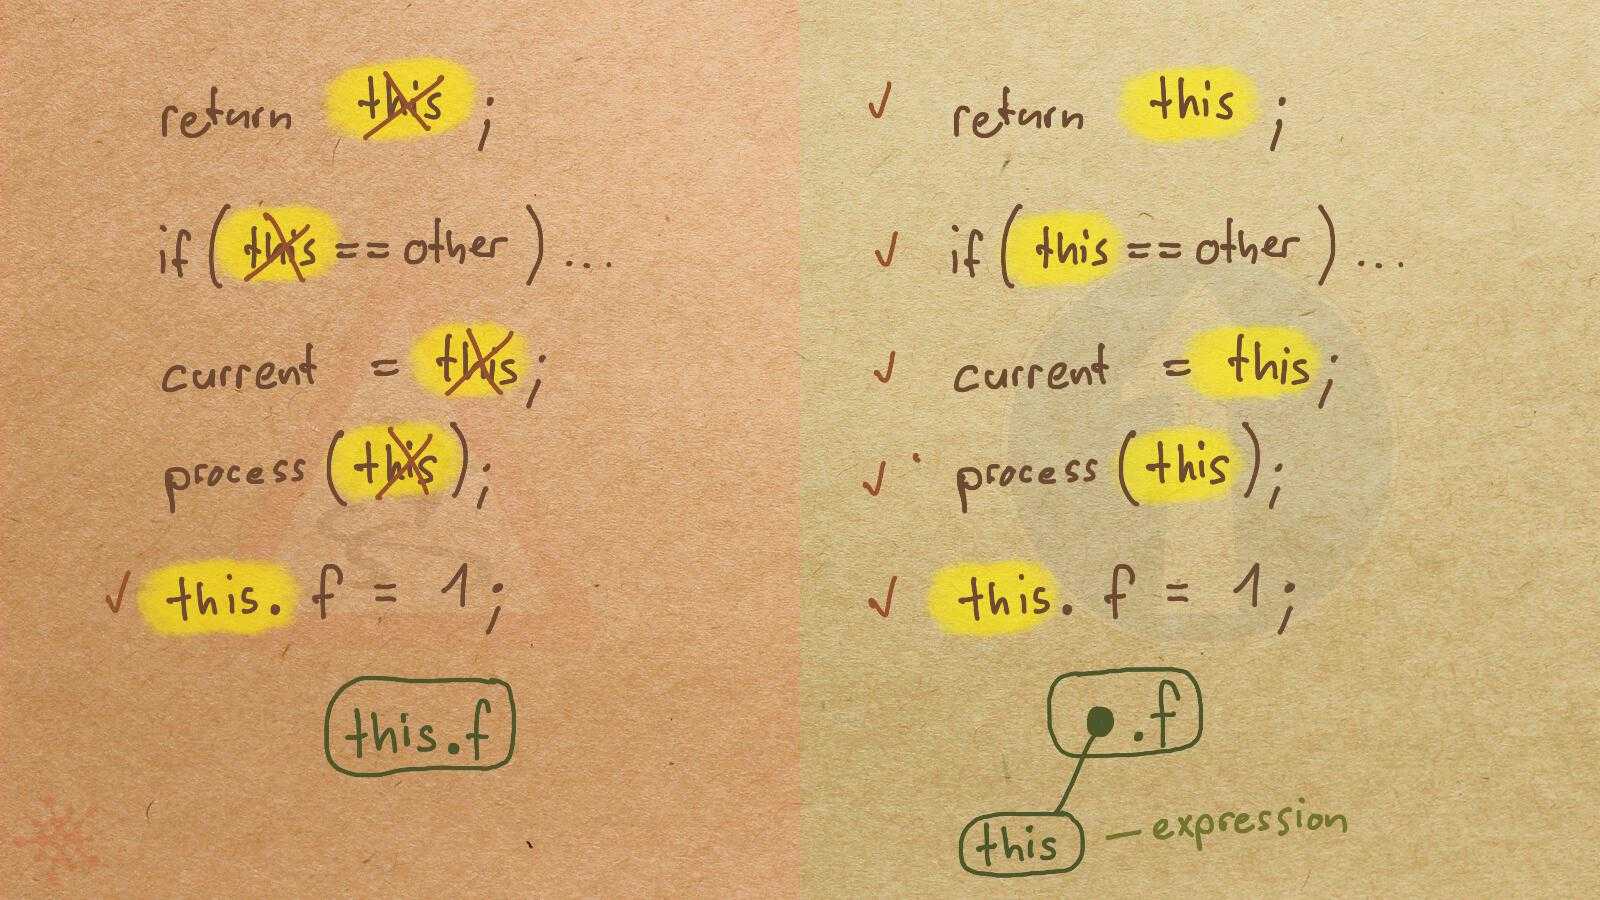 return this ;
if ( this == other ) ...
current = this ;
process ( this ) ;
✓ this. f = 1 ;
this.f
✓ return this ;
✓ if ( this == other ) ...
✓ current = this ;
✓ process ( this ) ;
✓ this. f = 1 ;
.f
this — expression